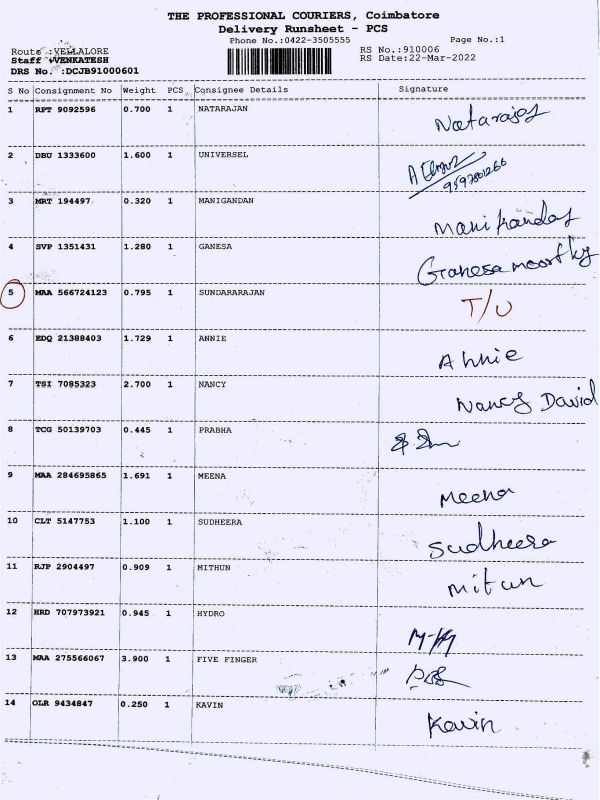 THE PROFESSIONAL COURIERS, Coimbatore
Delivery Runsheet - PCS
Phone No.:0422-3505555 Page No.:1
Route :VELLALORE RS No.:910006
Staff :VENKATESH RS Date:22-Mar-2022
DRS No. :DCJB91000601
S No Consignment No Weight PCS Consignee Details Signature
1 RPT 9092596 0.700 1 NATARAJAN Nataraj
2 DBU 1333600 1.600 1 UNIVERSEL
3 MRT 194497 0.320 1 MANIGANDAN Manikandan
4 SVP 1351431 1.280 1 GANESA Ganesa moorthy
5 MAA 566724123 0.795 1 SUNDARARAJAN T/U
6 EDQ 21388403 1.729 1 ANNIE Annie
7 TSI 7085323 2.700 1 NANCY Nancy David
8 TCG 50139703 0.445 1 PRABHA
9 MAA 284695865 1.691 1 MEENA Meena
10 CLT 5147753 1.100 1 SUDHEERA Sudheera
11 RJP 2904497 0.909 1 MITHUN Mitun
12 HRD 707973921 0.945 1 HYDRO
13 MAA 275566067 3.900 1 FIVE FINGER
14 OLR 9434847 0.250 1 KAVIN Kavin